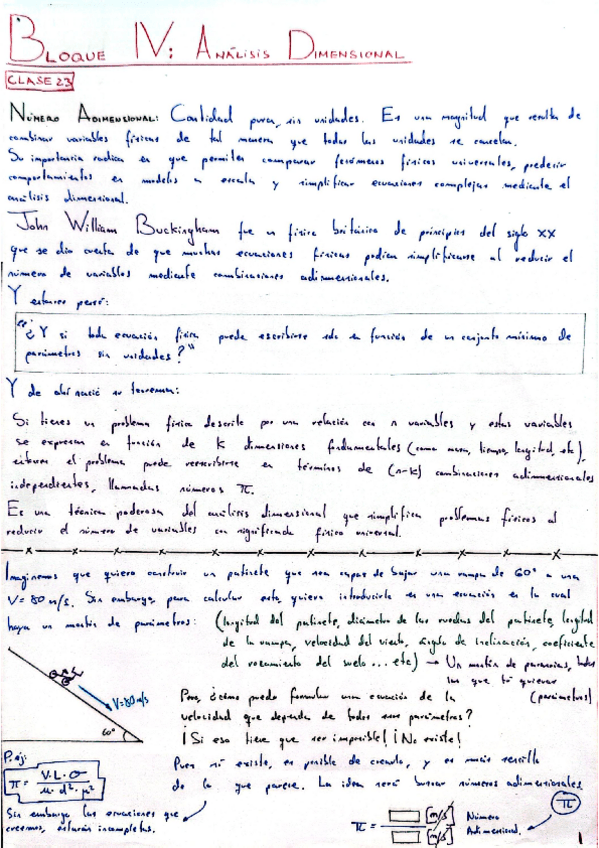 BLOQUE IV: ANÁLISIS DIMENSIONAL
CLASE 23
NÚMERO ADIMENSIONAL: Cantidad pura, sin unidades. Es una magnitud que resulta de
combinar variables físicas de tal manera que todas las unidades se cancelan.
Su importancia radica en que permiten comparar fenómenos físicos universales, predecir
comportamientos en modelos a escala y simplificar ecuaciones complejas mediante el
análisis dimensional.
JOHN WILLIAM BUCKINGHAM fue un físico británico de principios del siglo XX
que se dio cuenta de que muchas ecuaciones físicas podían simplificarse al reducir el
número de variables mediante combinaciones adimensionales.
Y entonces pensó:
"¿Y si toda ecuación física puede escribirse solo en función de un conjunto mínimo de
parámetros sin unidades?"
Y de ahí nació su teorema:
Si tienes un problema físico descrito por una relación con n variables y estas variables
se expresan en función de K dimensiones fundamentales (como masa, tiempo, longitud, etc),
entonces el problema puede reescribirse en términos de (n-k) combinaciones adimensionales
independientes, llamadas números π.
Es una técnica poderosa del análisis dimensional que simplifica problemas físicos al
reducir el número de variables con significado físico universal.
Imaginemos que quiero construir un patinete que sea capaz de bajar una rampa de 60° a una
V=80 m/s. Sin embargo, para calcular esto, quiero introducirlo en una ecuación en la cual
haya un mostón de parámetros: (longitud del patinete, diámetro de las ruedas del patinete, longitud
de la rampa, velocidad del viento, ángulo de inclinación, coeficiente
del rozamiento del suelo ... etc) → Un mostón de parámetros, todos
los que tú quieras
(parámetros)
V=80 m/s
60°
Pero, ¿cómo puedo formular una ecuación de la
velocidad que dependa de todos esos parámetros?
¡Si eso tiene que ser imposible! ¡No existe!
Pues sí existe, es posible de crearla, y es más sencillo
de lo que parece. La idea será buscar números adimensionales.
P. ej:
π = V·L·σ / μ·d²·μ²
Sin embargo las ecuaciones que
creemos, estarán incompletas.
π
π = [m/s] / [m/s] Número
Adimensional.
1